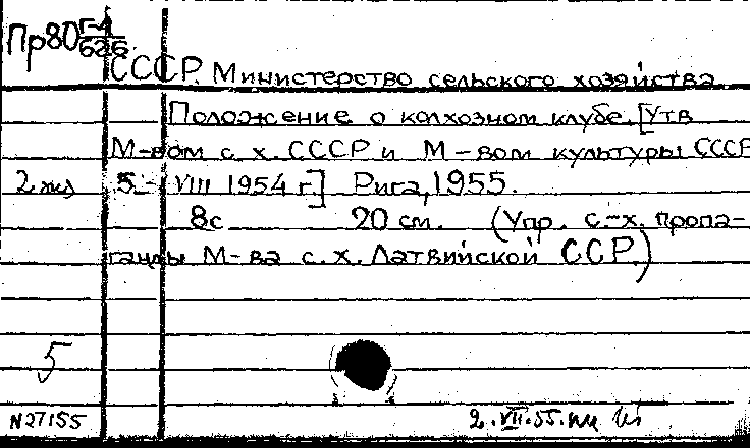 Пр80 Г-4/626
СССР. Министерство сельского хозяйства
Положение о колхозном клубе. [Утв
М-вом с. х. СССР и М-вом культуры СССР
2 экз 5 VIII 1954 г.] Рига, 1955.
8с 20 см. (Упр. с.-х. пропа-
ганды М-ва с. х. Латвийской ССР.)
5
N27155 2.VII.55.